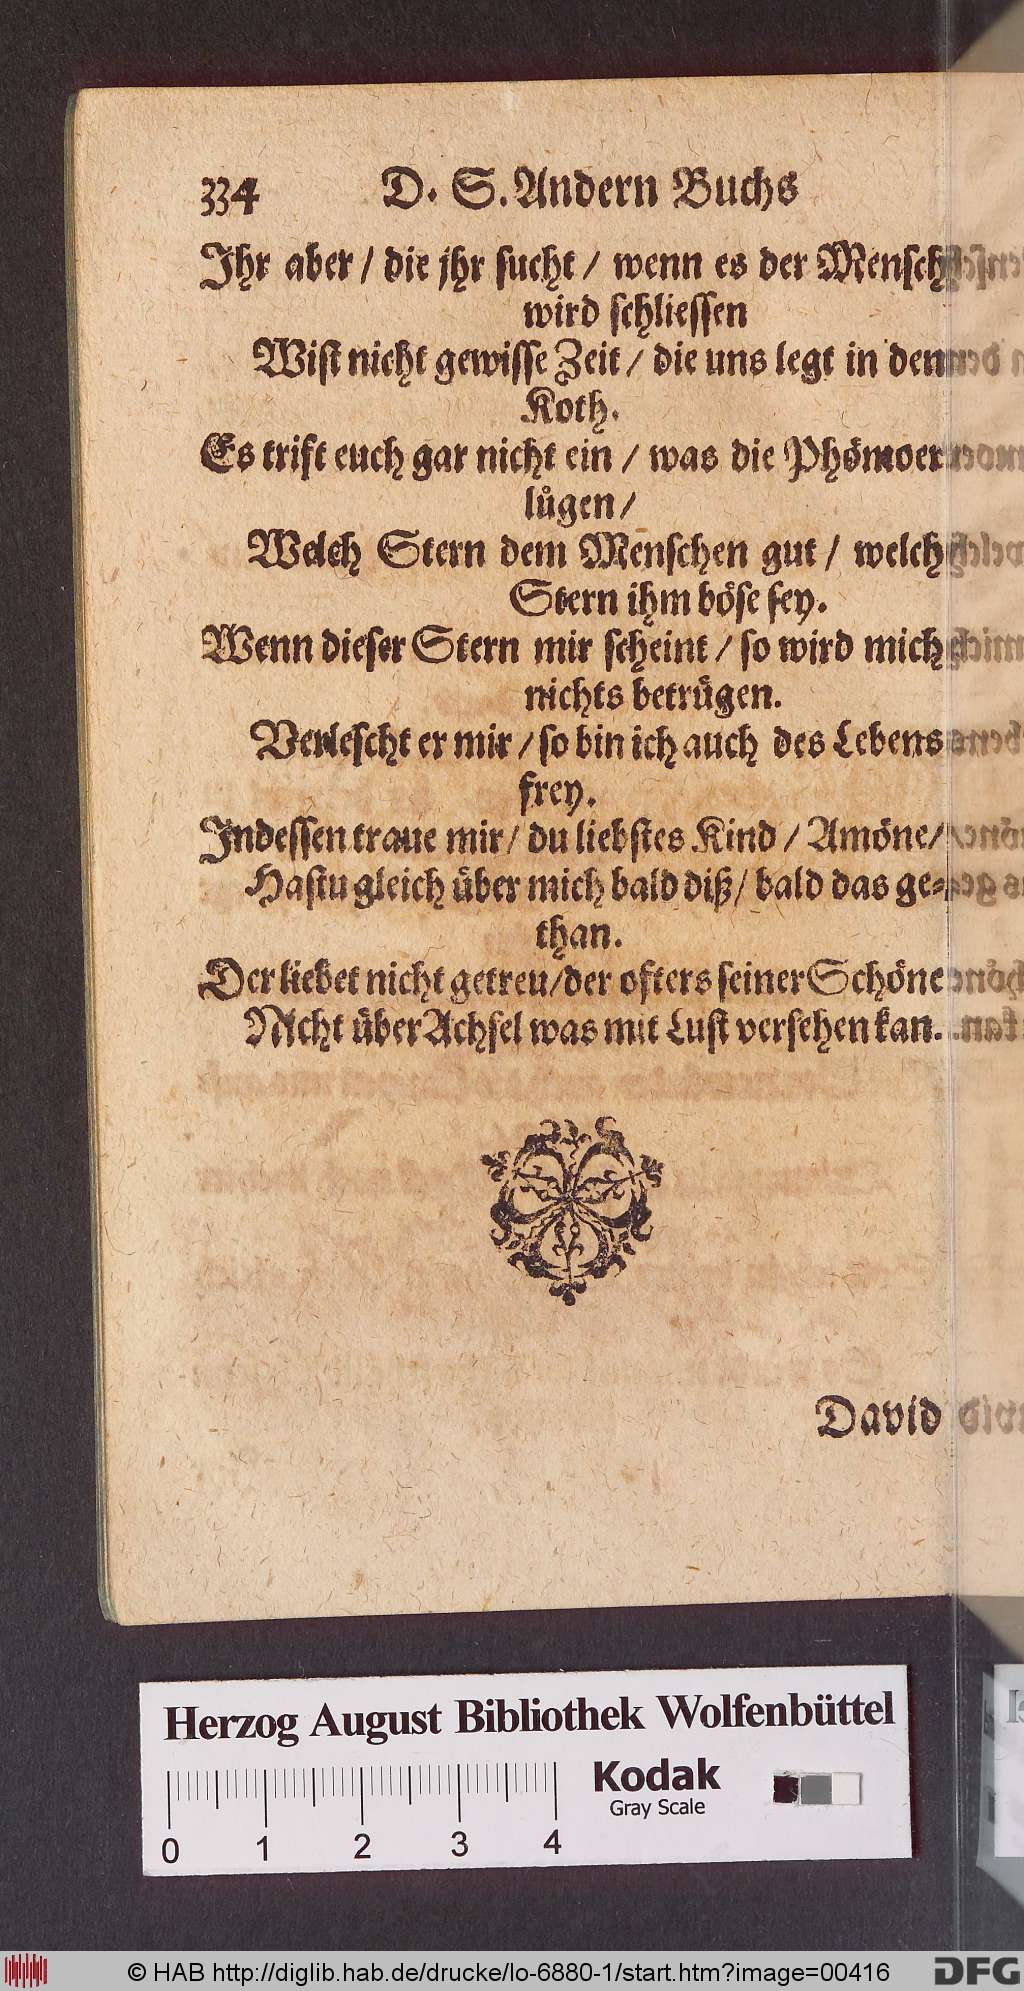 334 D. S. Andern Buchs
Ihr aber / die jhr sucht / wenn es der Mensch
wird schliessen
Wist nicht gewisse Zeit / die uns legt in den
Koth.
Es trift euch gar nicht ein / was die Phömoer
lůgen /
Welch Stern dem Menschen gut / welch
Stern ihm böse sey.
Wenn dieser Stern mir scheint / so wird mich
nichts betrügen.
Verlescht er mir / so bin ich auch des Lebens
frey.
Indessen traue mir / du liebstes Kind / Amöne /
Hastu gleich über mich bald diß / bald das ge-
than.
Der liebet nicht getreu / der ofters seiner Schöne
Nicht über Achsel was mit Lust versehen kan.
David
Herzog August Bibliothek Wolfenbüttel
Kodak
Gray Scale
0 1 2 3 4
© HAB http://diglib.hab.de/drucke/lo-6880-1/start.htm?image=00416
DFG